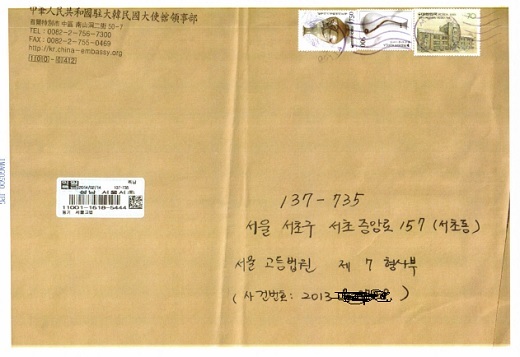 中華人民共和國駐大韓民國大使館領事部
首爾特別市 中區 南山洞二街 50-7
TEL : 0082-2-756-7300
FAX : 0082-2-755-0469
http://kr.china-embassy.org
100 - 042
11001-1618-5444
137 - 735
서울 서초구 서초중앙로 157 (서초동)
서울 고등법원 제 7 형사부
( 사건번호 : 2013 )